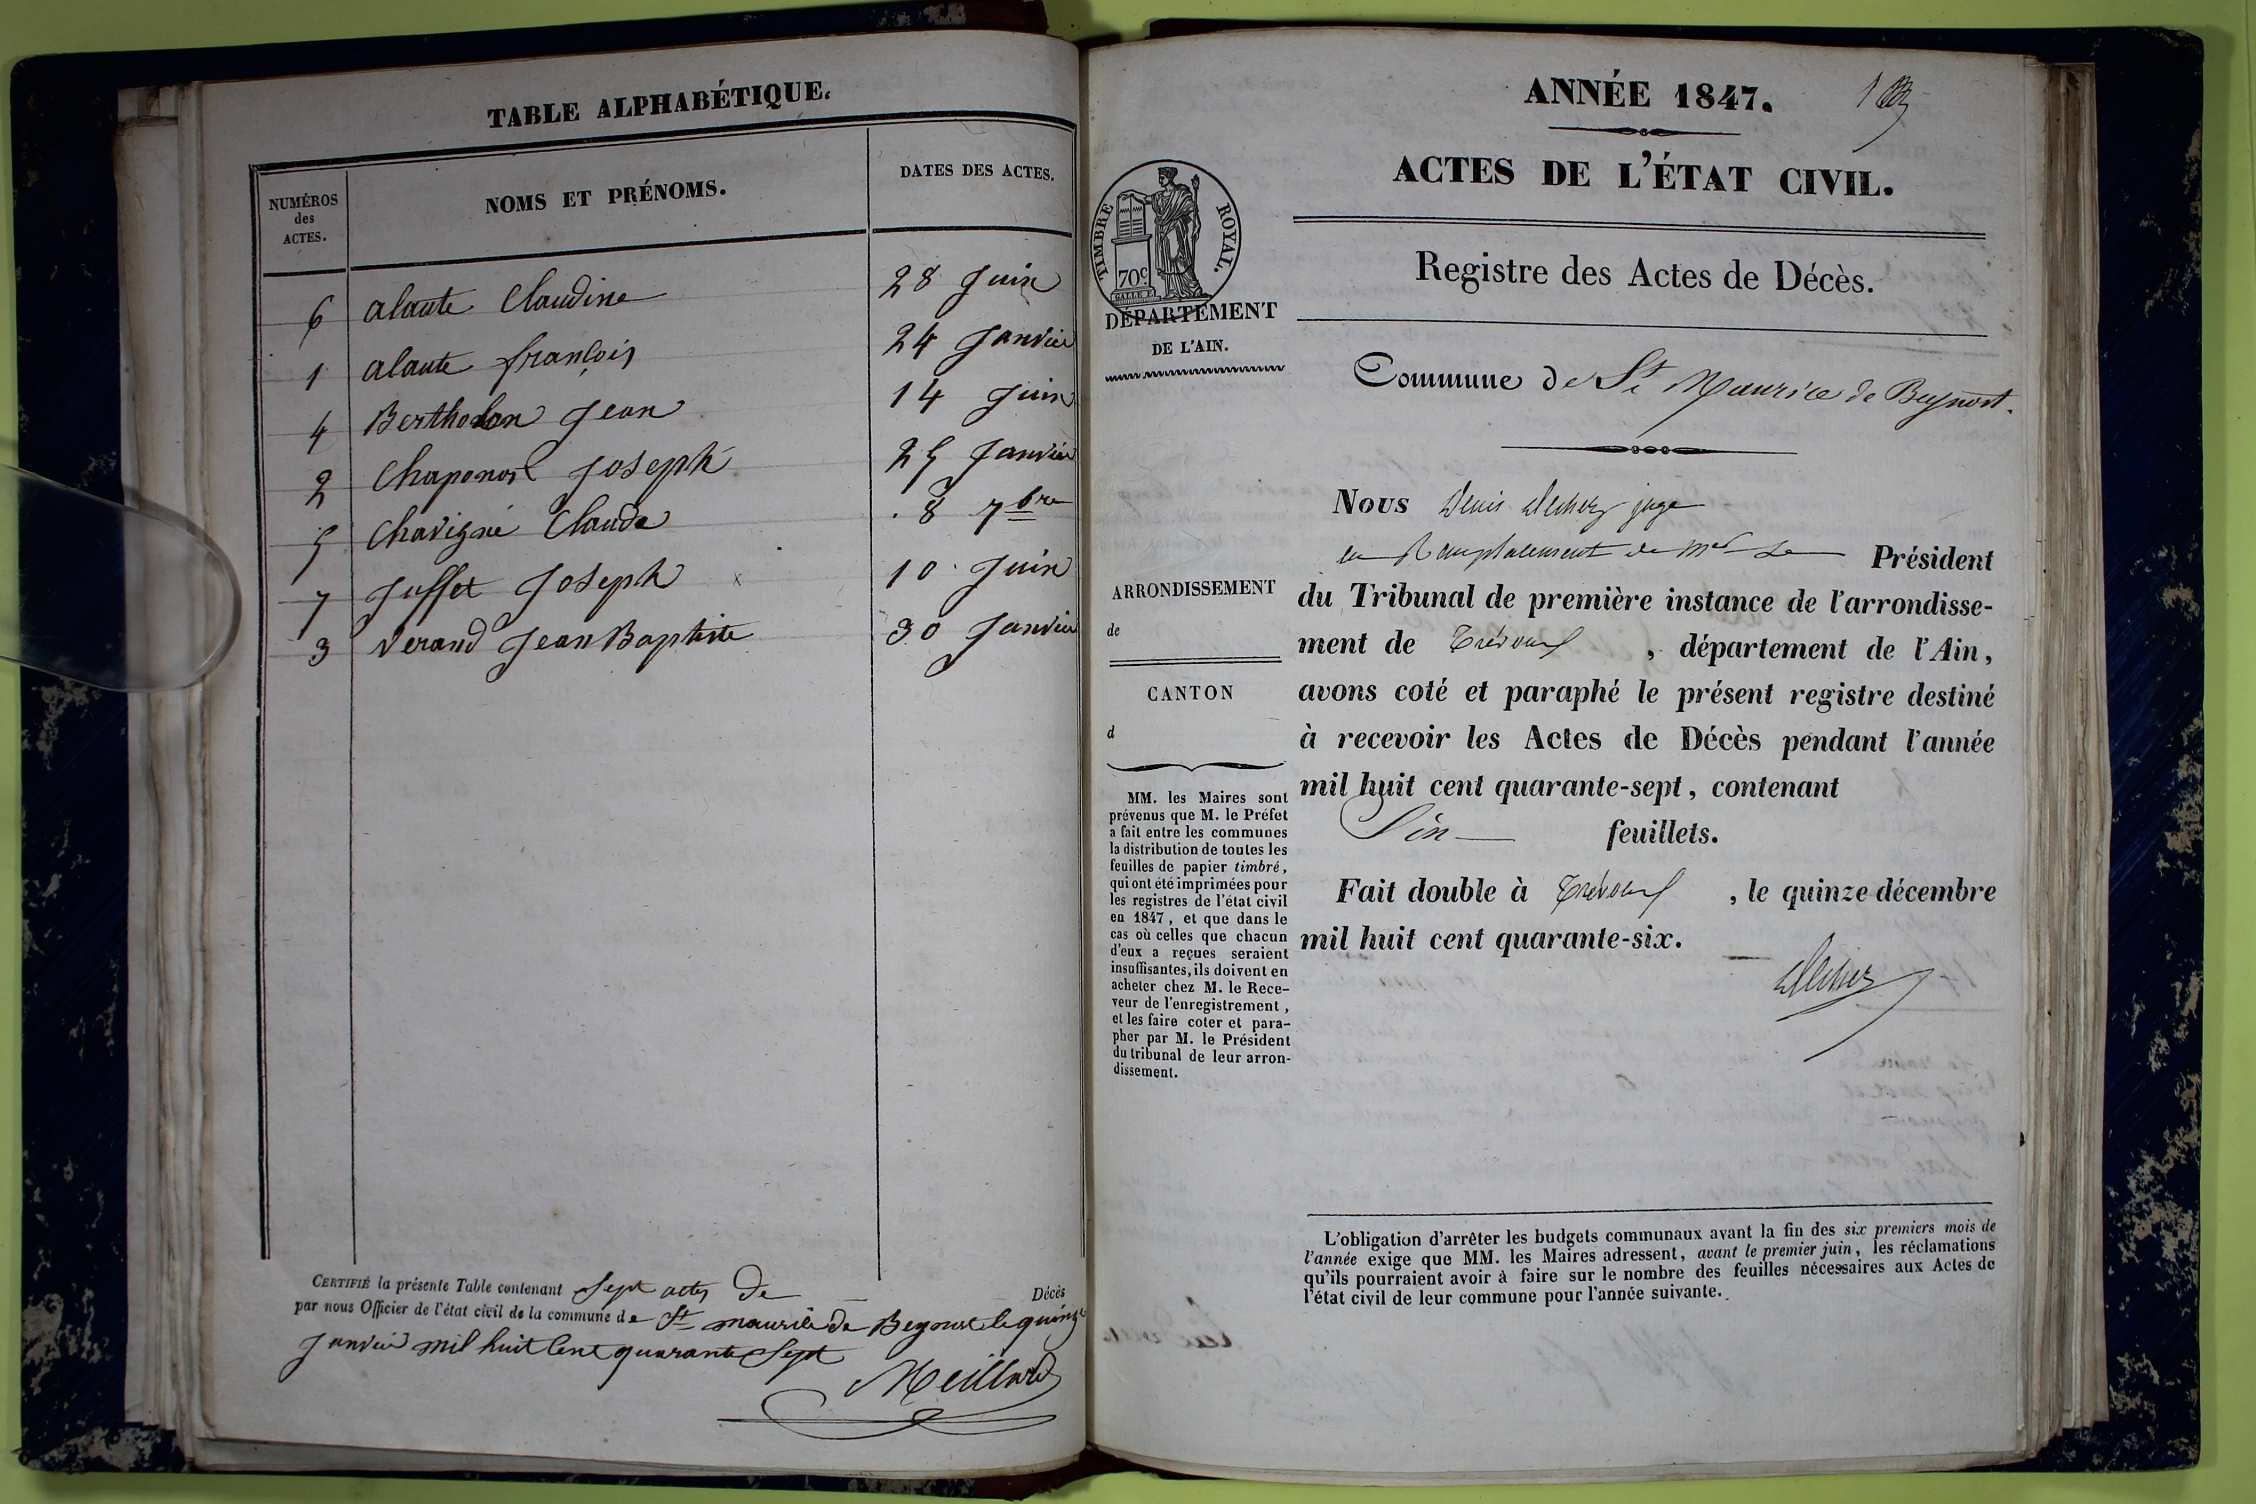 TABLE ALPHABÉTIQUE.
NUMÉROS
des
ACTES.
NOMS ET PRÉNOMS.
DATES DES ACTES.
6 alaute Claudine 28 Juin
1 alaute françois 24 Janvier
4 Berthelon Jean 14 Juin
2 Chaponos Joseph 25 Janvier
5 Chavigné Claude 8 7bre
7 Juffet Joseph 10 Juin
3 Verand Jean Baptiste 30 Janvier
CERTIFIÉ la présente Table contenant Sept actes De Décès
par nous Officier de l'état civil de la commune de St maurice de Beynost le quinze
Janvier mil huit Cent quarante Sept
Meillard
ANNÉE 1847.
ACTES DE L'ÉTAT CIVIL.
Registre des Actes de Décès.
TIMBRE ROYAL.
70c
DÉPARTEMENT
DE L'AIN.
Commune de St Maurice de Beynost.
ARRONDISSEMENT
de
CANTON
d
MM. les Maires sont
prévenus que M. le Préfet
a fait entre les communes
la distribution de toutes les
feuilles de papier timbré,
qui ont été imprimées pour
les registres de l'état civil
en 1847, et que dans le
cas où celles que chacun
d'eux a reçues seraient
insuffisantes, ils doivent en
acheter chez M. le Rece-
veur de l'enregistrement,
et les faire coter et para-
pher par M. le Président
du tribunal de leur arron-
dissement.
Nous Denis juge
en Remplacement de Mr Le Président
du Tribunal de première instance de l'arrondisse-
ment de Trévoux, département de l'Ain,
avons coté et paraphé le présent registre destiné
à recevoir les Actes de Décès pendant l'année
mil huit cent quarante-sept, contenant
Six feuillets.
Fait double à Trévoux, le quinze décembre
mil huit cent quarante-six.
L'obligation d'arrêter les budgets communaux avant la fin des six premiers mois de
l'année exige que MM. les Maires adressent, avant le premier juin, les réclamations
qu'ils pourraient avoir à faire sur le nombre des feuilles nécessaires aux Actes de
l'état civil de leur commune pour l'année suivante.